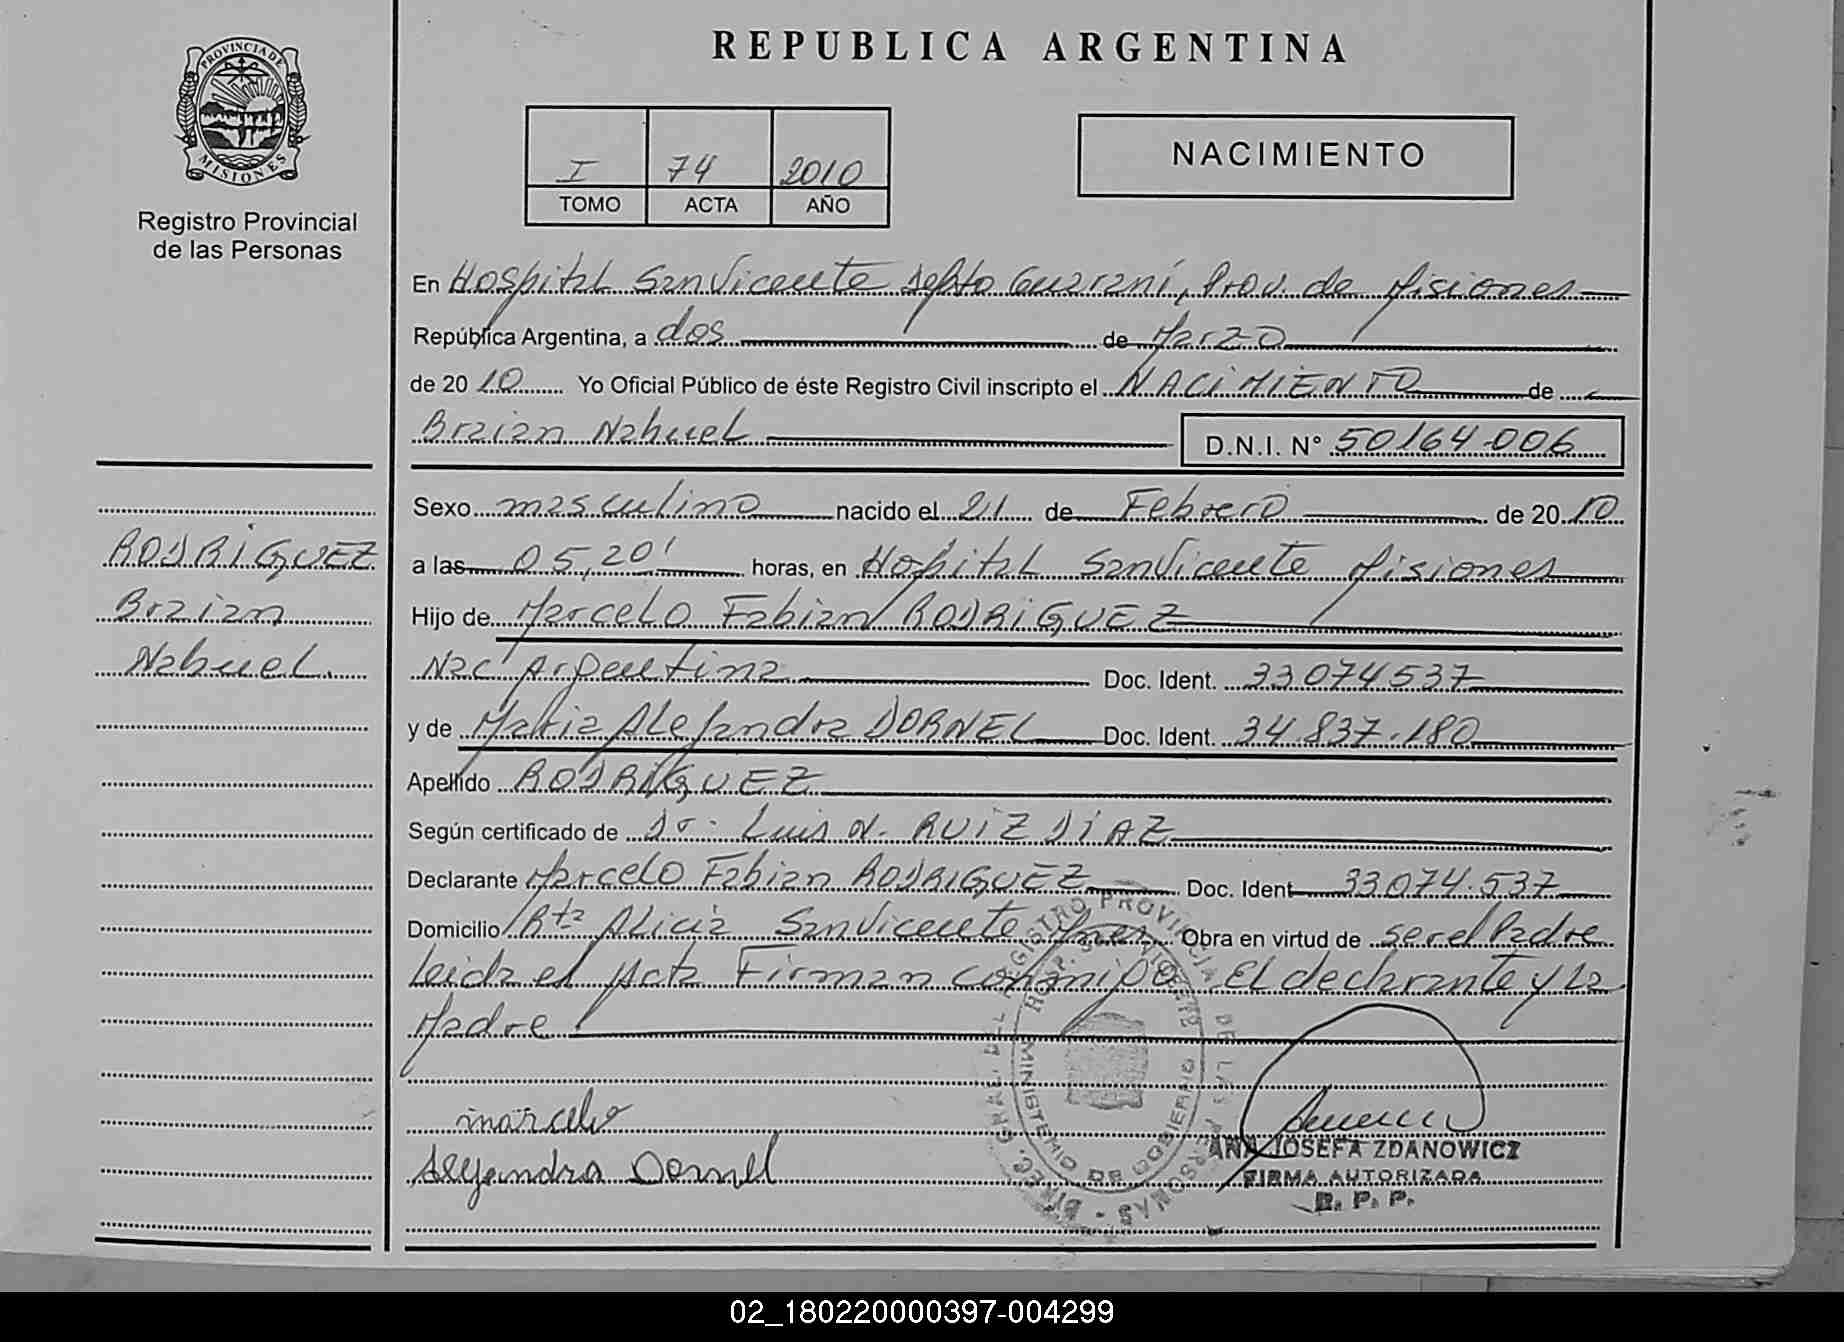 PROVINCIA DE
MISIONES
Registro Provincial
de las Personas
RODRIGUEZ
Braian
Nahuel
REPUBLICA ARGENTINA
I 74 2010
TOMO ACTA AÑO
NACIMIENTO
En Hospital San Vicente Depto Guaraní, Prov. de Misiones
República Argentina, a dos de Marzo
de 20 10 Yo Oficial Público de éste Registro Civil inscripto el NACIMIENTO de
Braian Nahuel D.N.I. N° 50164.006
Sexo masculino nacido el 21 de Febrero de 20 10
a las 05,20' horas, en Hospital San Vicente Misiones
Hijo de Marcelo Fabian RODRIGUEZ
Nac Argentina Doc. Ident. 33074537
y de Maria Alejandra DORNEL Doc. Ident. 34.837.180
Apellido RODRIGUEZ
Según certificado de Dr. Luis N. RUIZ DIAZ
Declarante Marcelo Fabian RODRIGUEZ Doc. Ident 33074.537
Domicilio Rta Alicia San Vicente Mnes Obra en virtud de ser el Padre
Leida el Acta Firman conmigo El declarante y la
Madre
marcelo
Alejandra Dornel
DIREC. GRAL. DEL REGISTRO PROVINCIAL DE LAS PERSONAS
MINISTERIO DE GOBIERNO
ANA JOSEFA ZDANOWICZ
FIRMA AUTORIZADA
R. P. P.
02_180220000397-004299